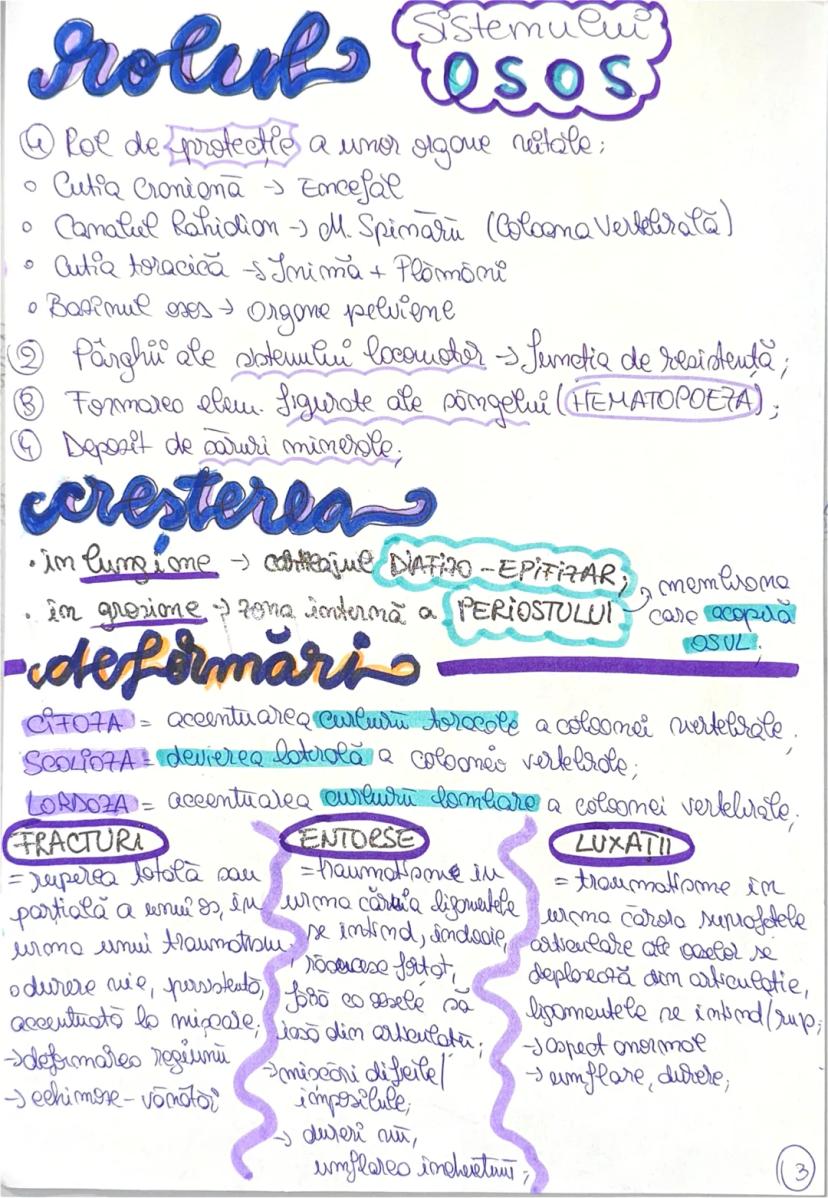 rolul Sistemului OSOS
① Rol de protecție a unor organe vitale;
◦ Cutia Craniană → Encefal
◦ Canalul Rahidian → M. Spinării (Coloana Vertebrală)
◦ Cutia toracică → Inimă + Plămâni
◦ Bazinul osos → Organe pelviene
② Pârghii ale sistemului locomotor → funcția de rezistență;
③ Formarea elem. figurate ale sângelui (HEMATOPOEZA);
④ Depozit de săruri minerale;
creșterea
· în lungime → cartilajul DIAFIZO-EPIFIZAR;
· în grosime → zona internă a PERIOSTULUI → membrana
care acoperă
OSUL;
deformări
CIFOZA = accentuarea curburii toracale a coloanei vertebrale;
SCOLIOZA = devierea laterală a coloanei vertebrale;
LORDOZA = accentuarea curburii lombare a coloanei vertebrale;
FRACTURI
= ruperea totală sau
parțială a unui os, în
urma unui traumatism
◦ durere vie, persistentă,
accentuată la mișcare;
→ deformarea regiunii
→ echimoze - vânătăi
ENTORSE
= traumatisme în
urma căruia ligamentele
se întind, îndoaie,
răsucesc forțat,
fără ca oasele să
iasă din articulații;
→ mișcări dificile/
imposibile;
→ dureri vii,
umflarea încheieturii;
LUXAȚII
= traumatisme în
urma cărora suprafețele
articulare ale oaselor se
deplasează din articulație,
ligamentele se întind/rup;
→ aspect anormal
→ umflare, durere;
3